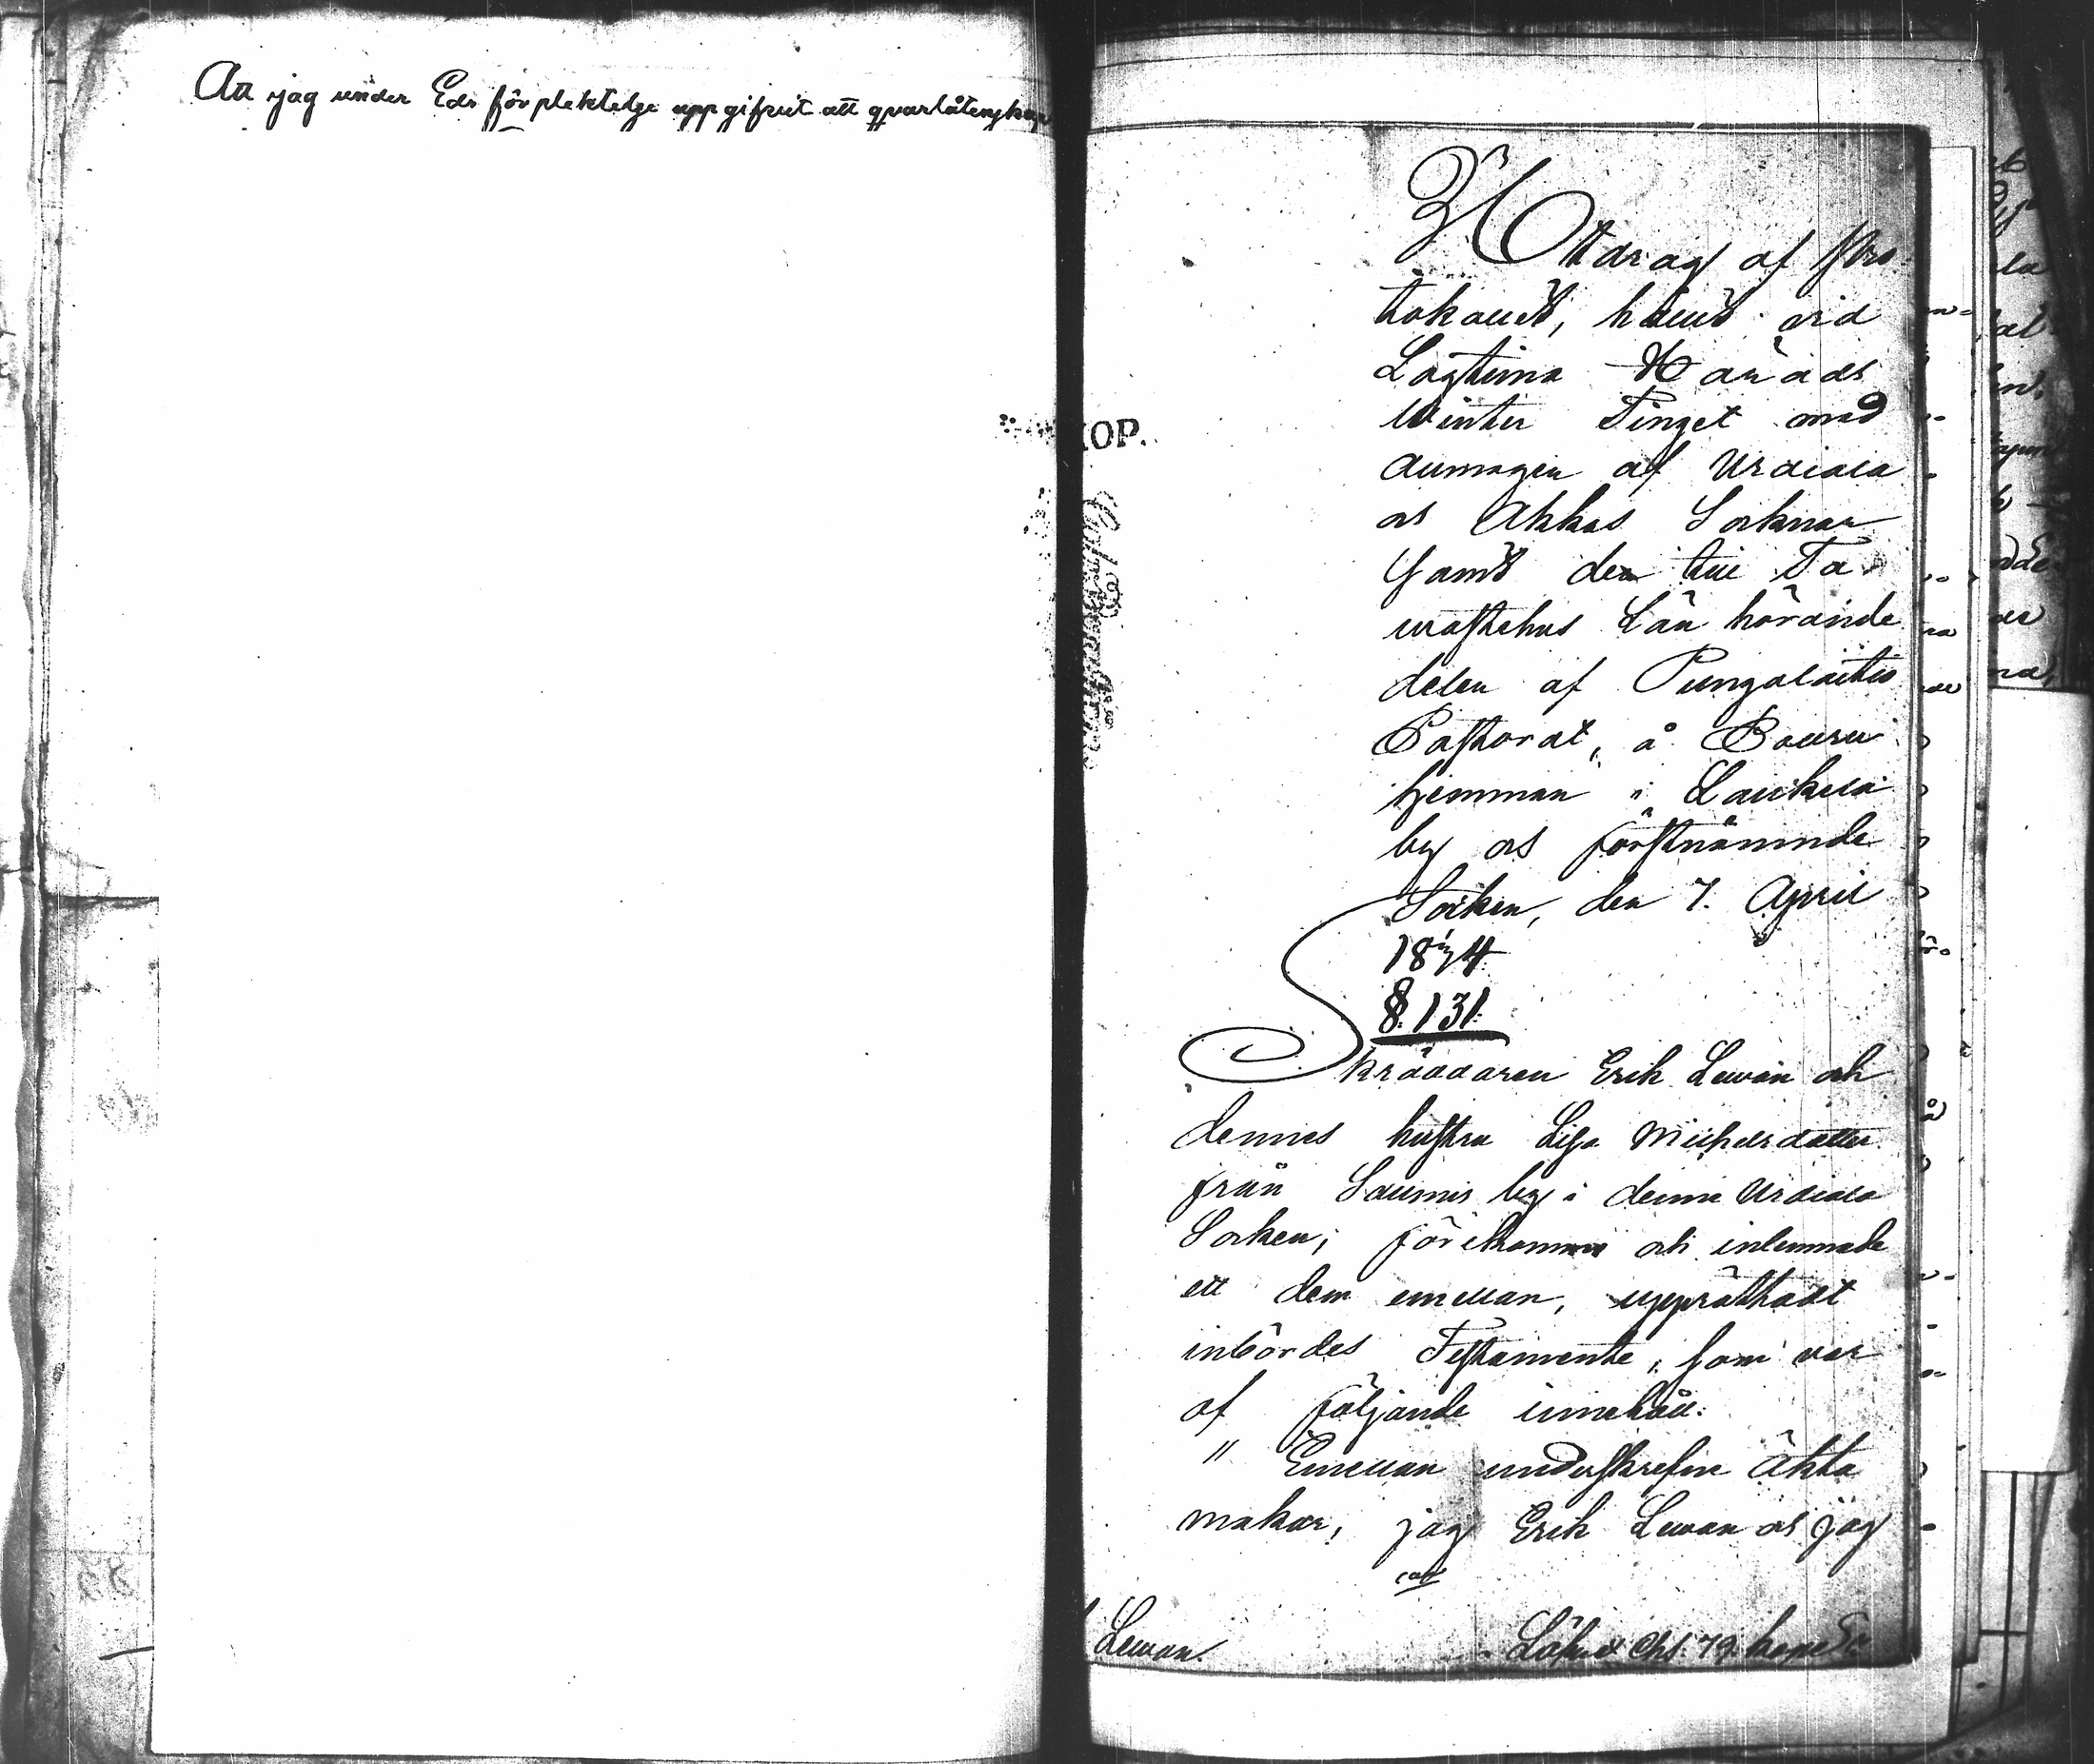 Att jag under Eds förpliktelse uppgifvit att qvarlåtenskap
KOP.
Utdrag af Pro
tokollet, hållet vid
Lagtima Härads
Winter Tinget med
allmogen af Urdiala
och Akkas Socknar
samt den till Ta
wastehus Län hörande
delen af Pungalaitio
Pastorat, å Pouru
hemman i Laukela
by och förstnämnde
Socken, den 7. April
1874
§. 131.
Skräddaren Erik Lewan och
dennes hustru Lisa Michelsdotter
från Saumis by i denne Urdiala
Socken; förekommo och inlemnade
ett dem emellan, upprättadt
inbördes Testamente, som var
af följande innehåll:
" Emellan underskrefne äkta
makar, jag Erik Lewan och jag
Lewan.